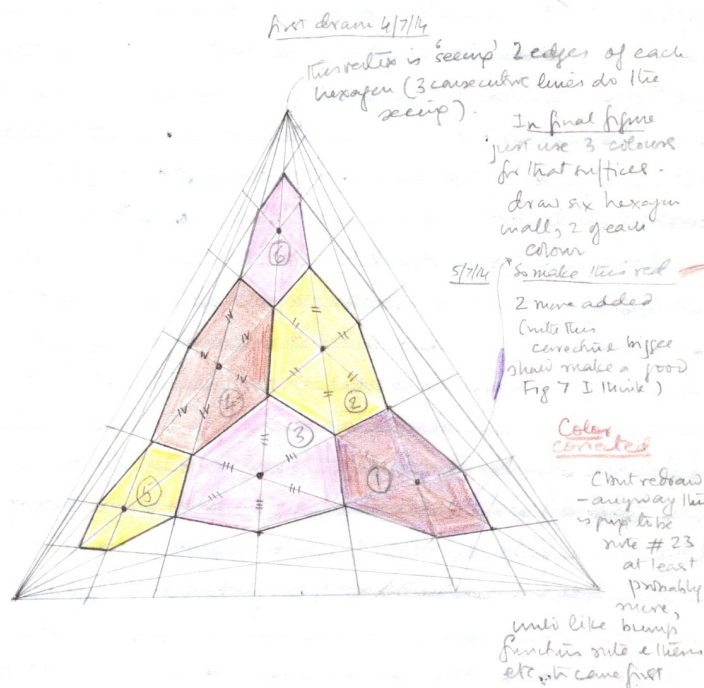 first drawn 4/7/14
this vertex is 'seeing' 2 edges of each
hexagon (3 consecutive lines do the
seeing).
In final figure
just use 3 colours
for that suffices.
draw six hexagon
in all, 2 of each
colour
5/7/14 So make this red
2 more added
(with this
correction bigger
should make a good
Fig 7 I think)
Color
corrected
(but redraw
- anyway this
is
note # 23
at least
probably
more,
bump
functions note
etc. came first
6
4
2
3
1
5